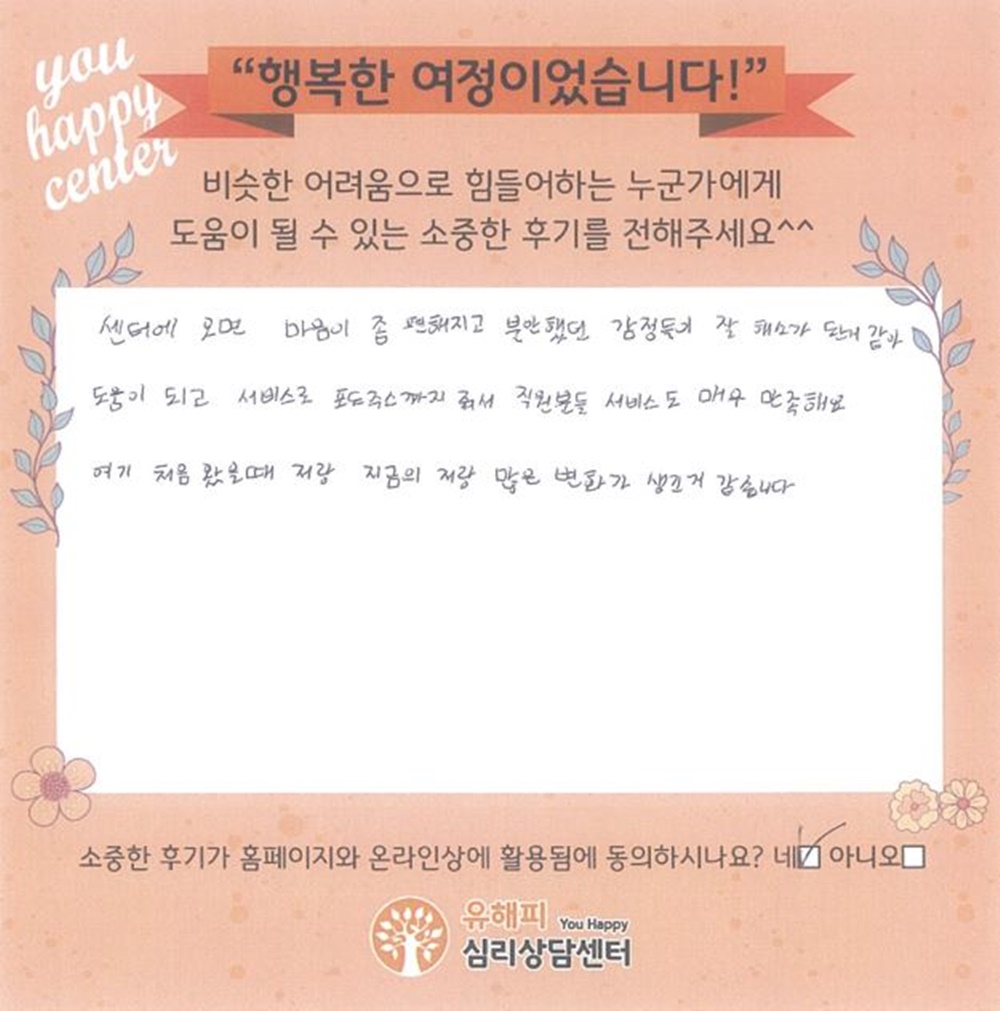 you
happy
center
“행복한 여정이었습니다!”
비슷한 어려움으로 힘들어하는 누군가에게
도움이 될 수 있는 소중한 후기를 전해주세요^^
센터에 오면 마음이 좀 편해지고 불안했던 감정들이 잘 해소가 된거 같아
도움이 되고 서비스로 포도주스까지 줘서 직원분들 서비스도 매우 만족해요
여기 처음 왔을때 저랑 지금의 저랑 많은 변화가 생긴거 같습니다
소중한 후기가 홈페이지와 온라인상에 활용됨에 동의하시나요? 네 아니오
유해피 You Happy
심리상담센터